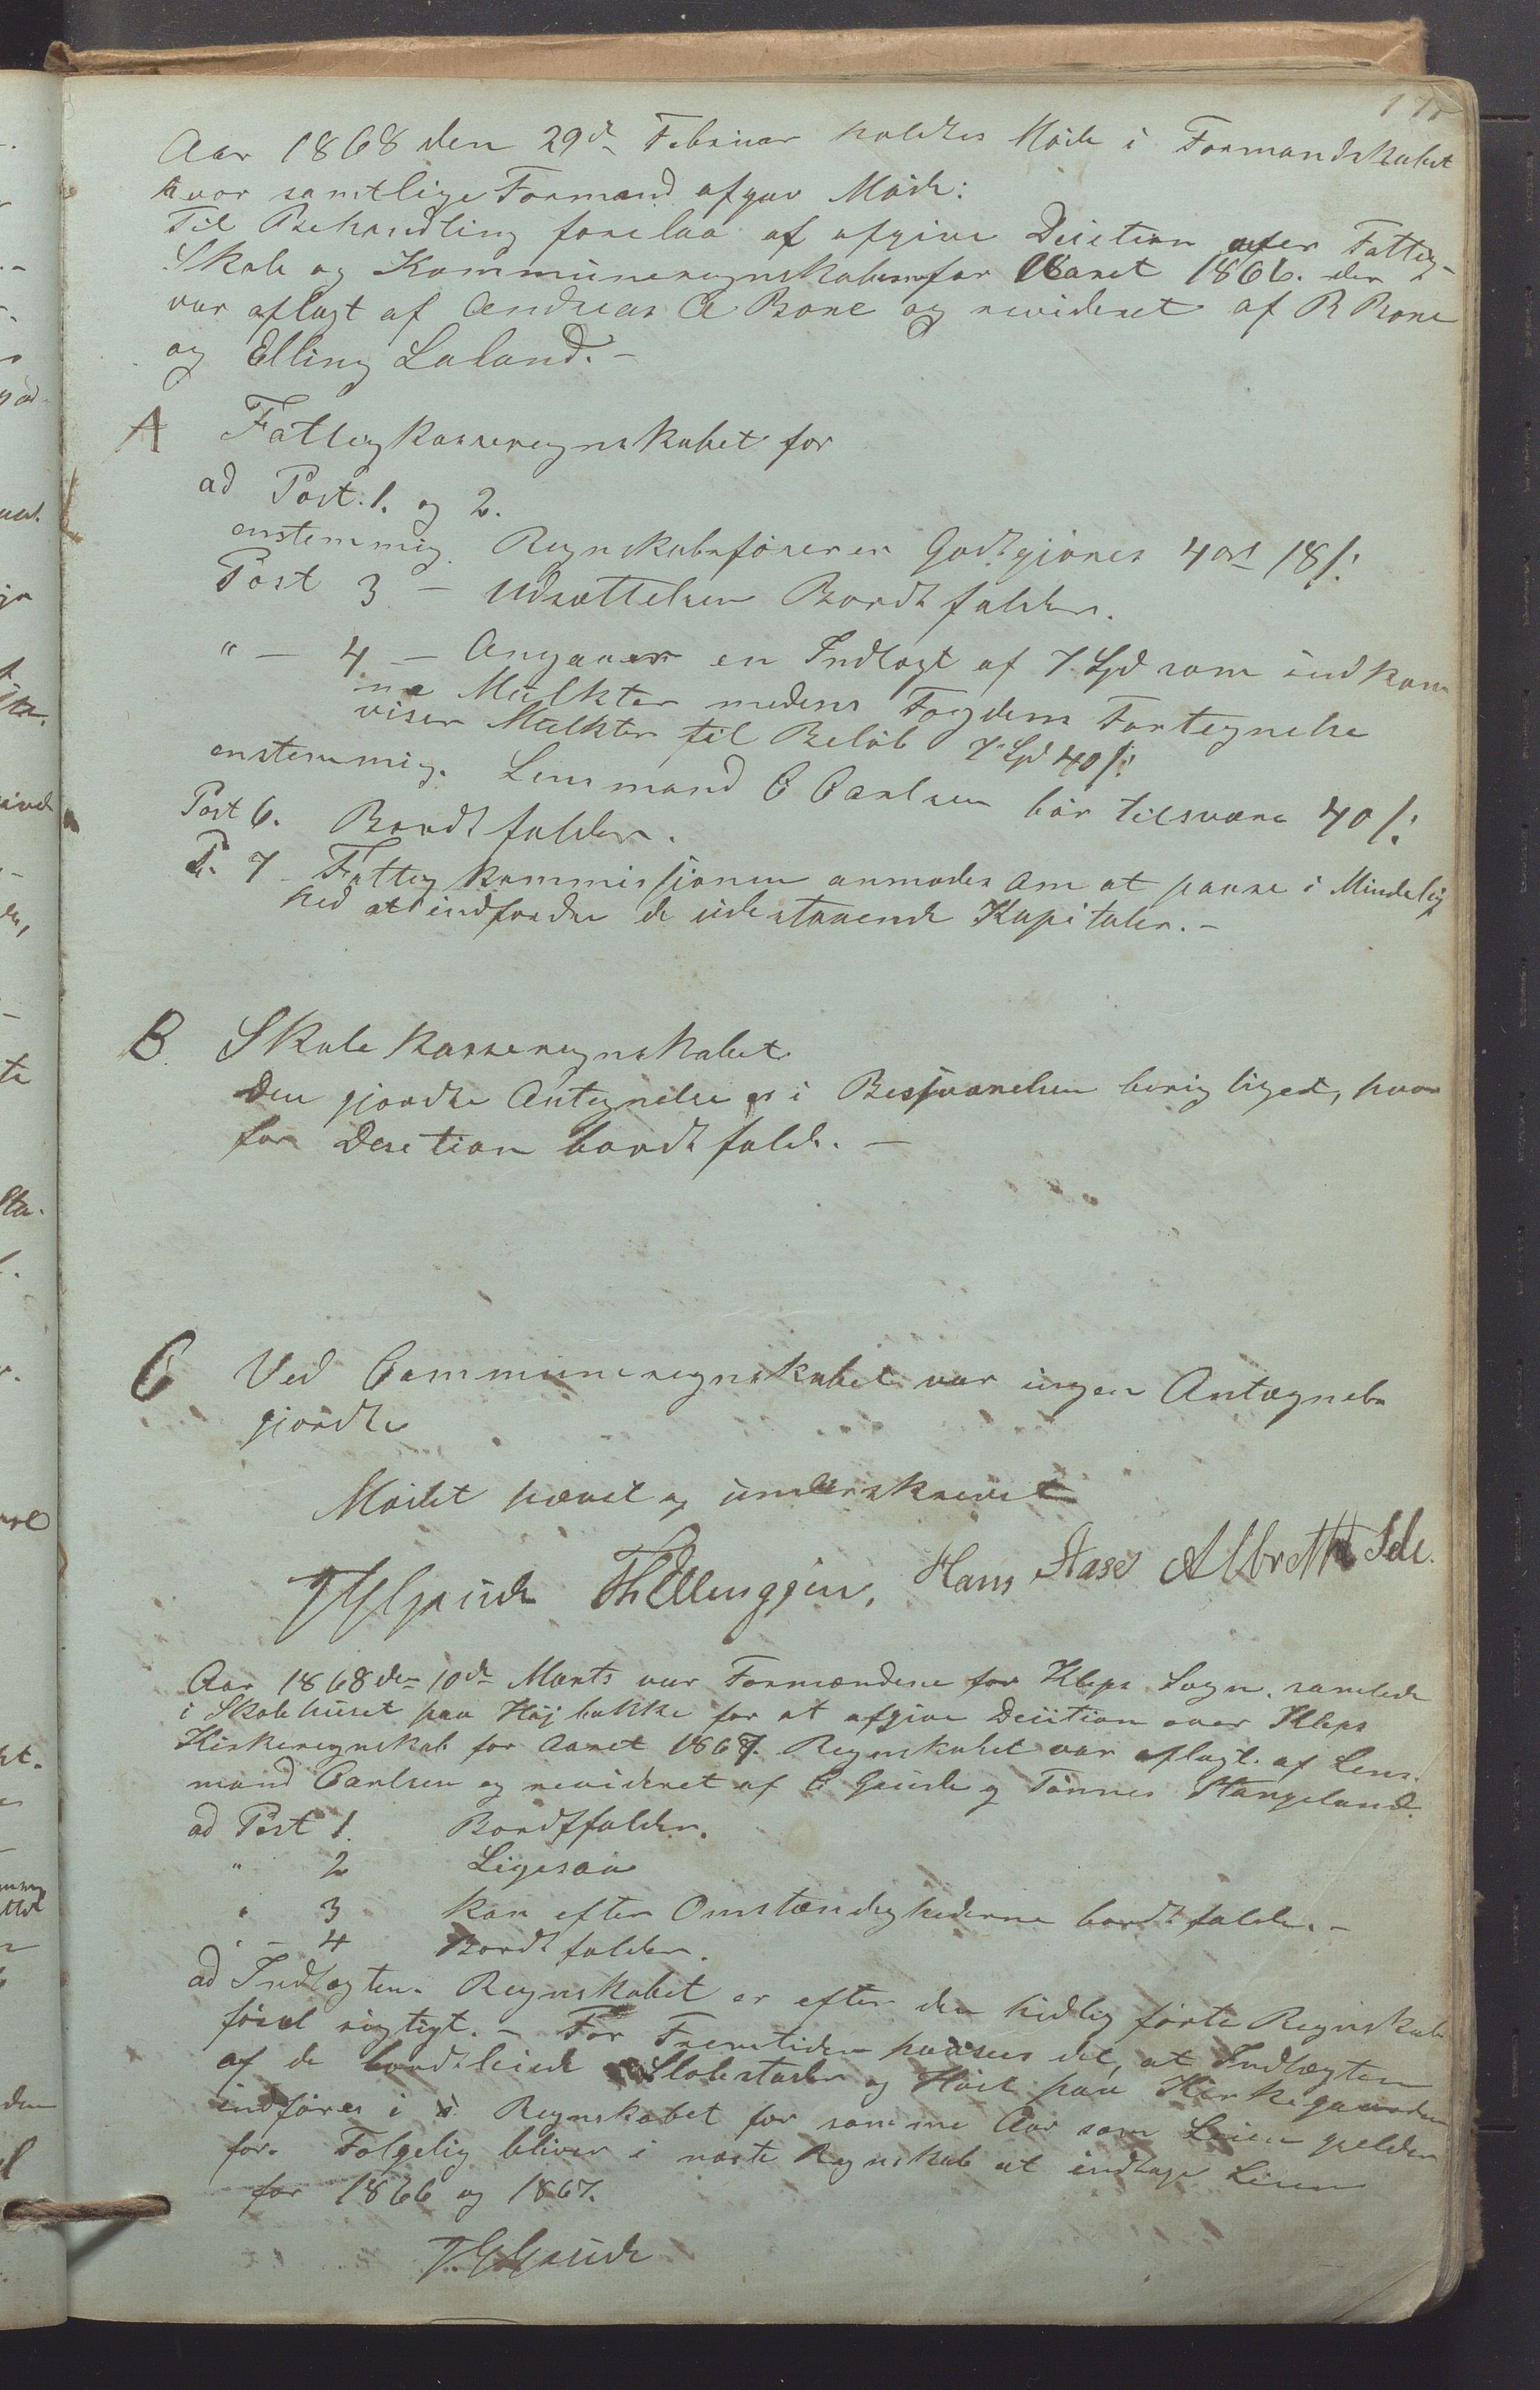 Aar 1868 den 29de Februar holdtes Møde i Formandskabet
hvor samtlige Formænd afgav Møde:
Til Behandling forelaa af afgive Desition over Fattig-
Skole og Kommuneregnskaberne for Aaret 1866. der
var aflagt af Andreas A Bore og revideret af R Bore
og Elling Laland. -
A Fattigkasseregnskabet for
ad Post. 1. og 2.
enstemmig. Regnskabsføreren Godtgjøres 4 ort 18 s:
Post 3 - Udsættelsen Bordtfalder.
" - 4 - Angaaer en Indtægt af 7 Spd som indkom
ne Mulkter medens Fogdens Fortegnelse
viser Mulkter til Beløb 7 Spd 40 s:
enstemmig. Lensmand C Carlsen bør tilsvare 40 s:
Post 6. Bordtfalder.
P. 7 - Fattigkommissjonen anmodes om at paase i Mindelig
hed at indfordre de udestaaende Kapitaler. -
B. Skolekasseregnskabet
Den gjordte Antegnelse er i Besvarelsen berigtiget, hvor
for Desetion bordtfalde. -
C Ved Communeregnskabet var ingen Antægnelse
gjordte
Mødet hævet og underskrevet
Th Ellingsen, Hans Aase Albrett Sele.
Aar 1868 den 10de Marts var Formændene for Kleps Sogn. samlede
i Skolehuset paa Højbakke for at afgive Desition over Kleps
Kirkeregnskab for Aaret 1867. Regnskabet var aflagt. af Lens.
mand Carlsen og revideret af C Grude og Tønnes Stangeland.
ad Post 1. Bordtfalder.
" 2 Ligesaa
" 3 kan efter Omstændighederne bordtfalde. -
" - 4 Bordtfalder.
ad Indtægten. Regnskabet er efter den hidtig førte Regnskabs
førsel rigtigt. - For Fremtiden paasees det, at Indtægten
af de bordtleiede Stolestader og Høiet paa Kirkegaarden
indføres i Regnskabet for samme Aar som Leien gjelder
for. Følgelig bliver i næste Regnskab at indtage Leien
for 1866 og 1867.